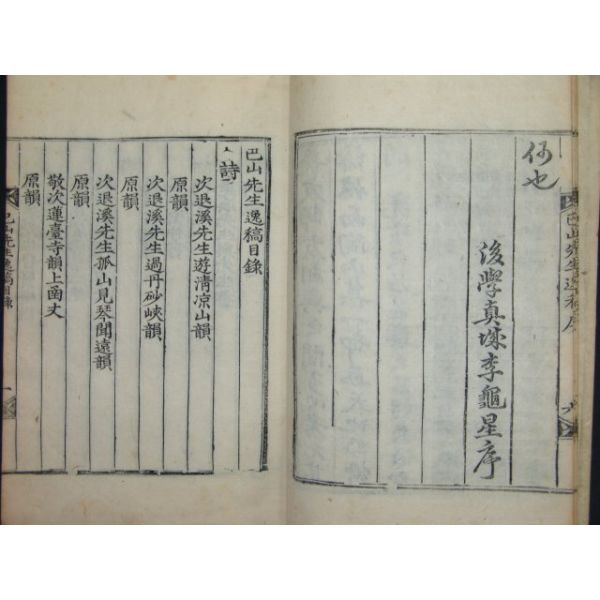 何也
後學真城李龜星序
巴山先生逸稿序
六
巴山先生逸稿目錄
詩
次退溪先生遊清凉山韻
原韻
次退溪先生過丹砂峽韻
原韻
次退溪先生孤山見琴聞遠韻
原韻
敬次蓮臺寺韻上函丈
原韻
巴山先生逸稿目錄
一